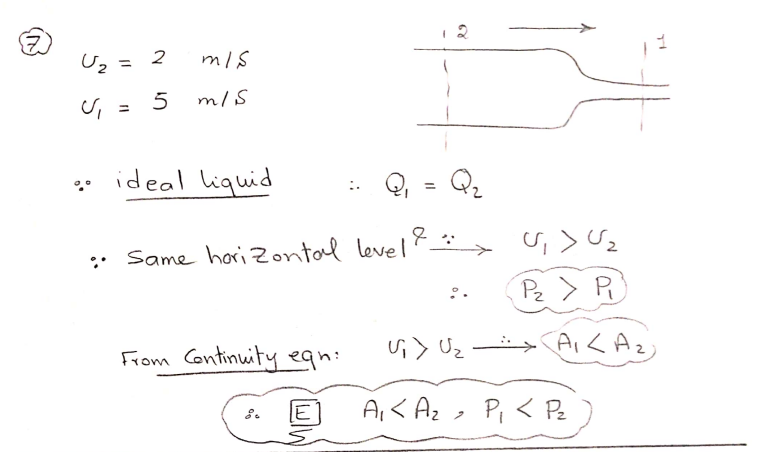 7
2 1
U₂ = 2 m/s
U₁ = 5 m/s
∵ ideal liquid ∴ Q₁ = Q₂
∵ Same horizontal level & ∵ → U₁ > U₂
∴ P₂ > P₁
From Continuity eqn: U₁ > U₂ ∴ → A₁ < A₂
∴ E A₁ < A₂ , P₁ < P₂